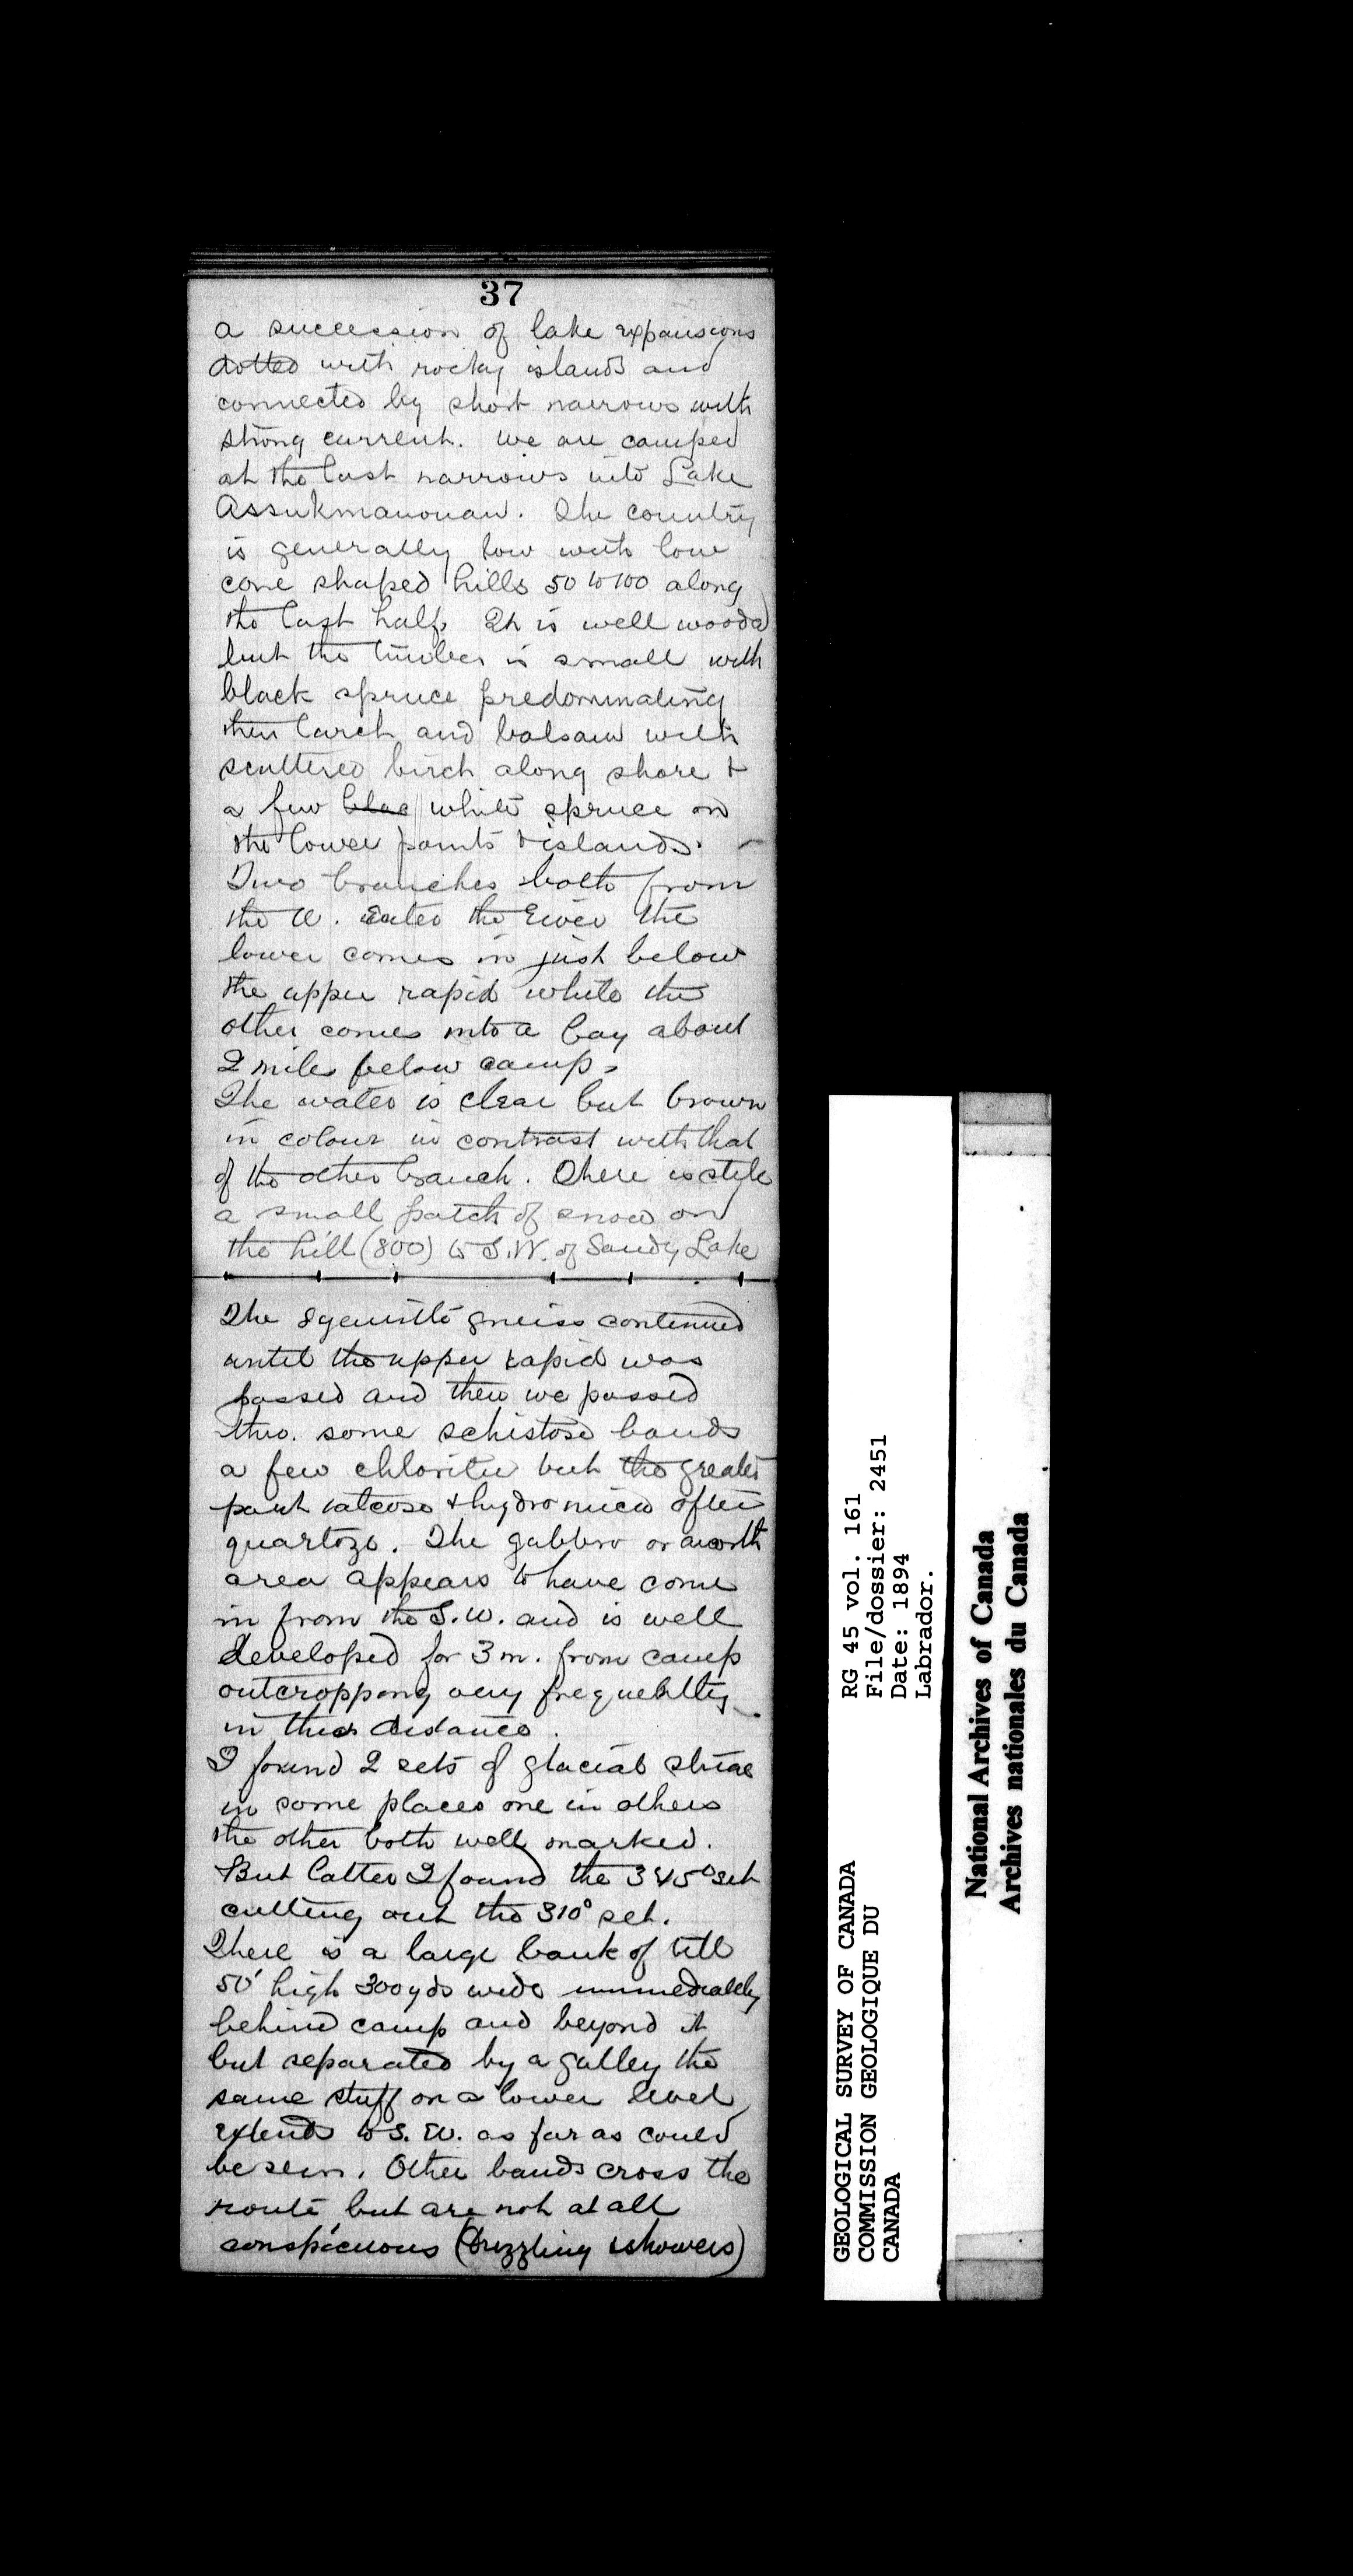 37
a succession of lake expansions
dotted with rocky islands and
connected by short narrows with
strong current. We are camped
at the last narrows into Lake
Assukmanouan. The country
is generally low with low
cone shaped hills 50 to 100 along
the last half. It is well wooded
but the timber is small with
black spruce predominating
then larch and balsam with
scattered birch along shore &
a few white spruce on
the lower points & islands.
Two branches both from
the W. enter the river the
lower comes in just below
the upper rapid while the
other comes into a bay about
2 miles below camp.
The water is clear but brown
in colour in contrast with that
of the other branch. There is still
a small patch of snow on
the hill (800) to S.W. of Sandy Lake
The syenitic gneiss continued
until the upper rapid was
passed and then we passed
thro. some schistose bands
a few chloritic but the greater
part & hydromica often
quartoze. The gabbro or anorth
area appears to have come
in from the S.W. and is well
developed for 3 m. from camp
outcropping very frequently
in this distance.
I found 2 sets of glacial striae
in some places one in others
the other both well marked.
But latter I found the 345° set
cutting out the 310° set.
There is a large bank of till
50' high 300 yds wide immediately
behind camp and beyond it
but separated by a gulley the
same stuff on a lower level
extends to S.W. as far as could
be seen. Other bands cross the
route but are not at all
conspicuous (Drizzling showers)
RG 45 vol. 161
File/dossier: 2451
Date: 1894
Labrador.
GEOLOGICAL SURVEY OF CANADA
COMMISSION GEOLOGIQUE DU
CANADA
National Archives of Canada
Archives nationales du Canada